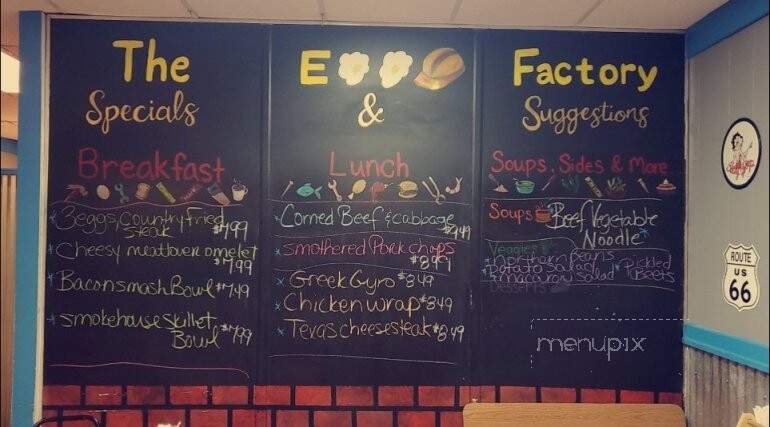 The
E
Factory
Specials
&
Suggestions
Breakfast
3 eggs, Country fried
steak $7.99
Cheesy meatlover omelet
$7.99
Bacon smash Bowl $7.49
smokehouse skillet
Bowl $7.99
Lunch
Corned Beef & cabbage
$9.49
smothered Pork chops
$8.99
Greek Gyro $8.49
Chicken wrap $8.49
Texas cheesesteak $8.49
Soups, Sides & More
Soups Beef Vegetable
Noodle
Veggies
Northern Beans
Potato Salad
macaroni Salad
Pickled
Beets
Desserts
ROUTE
US
66
menupix